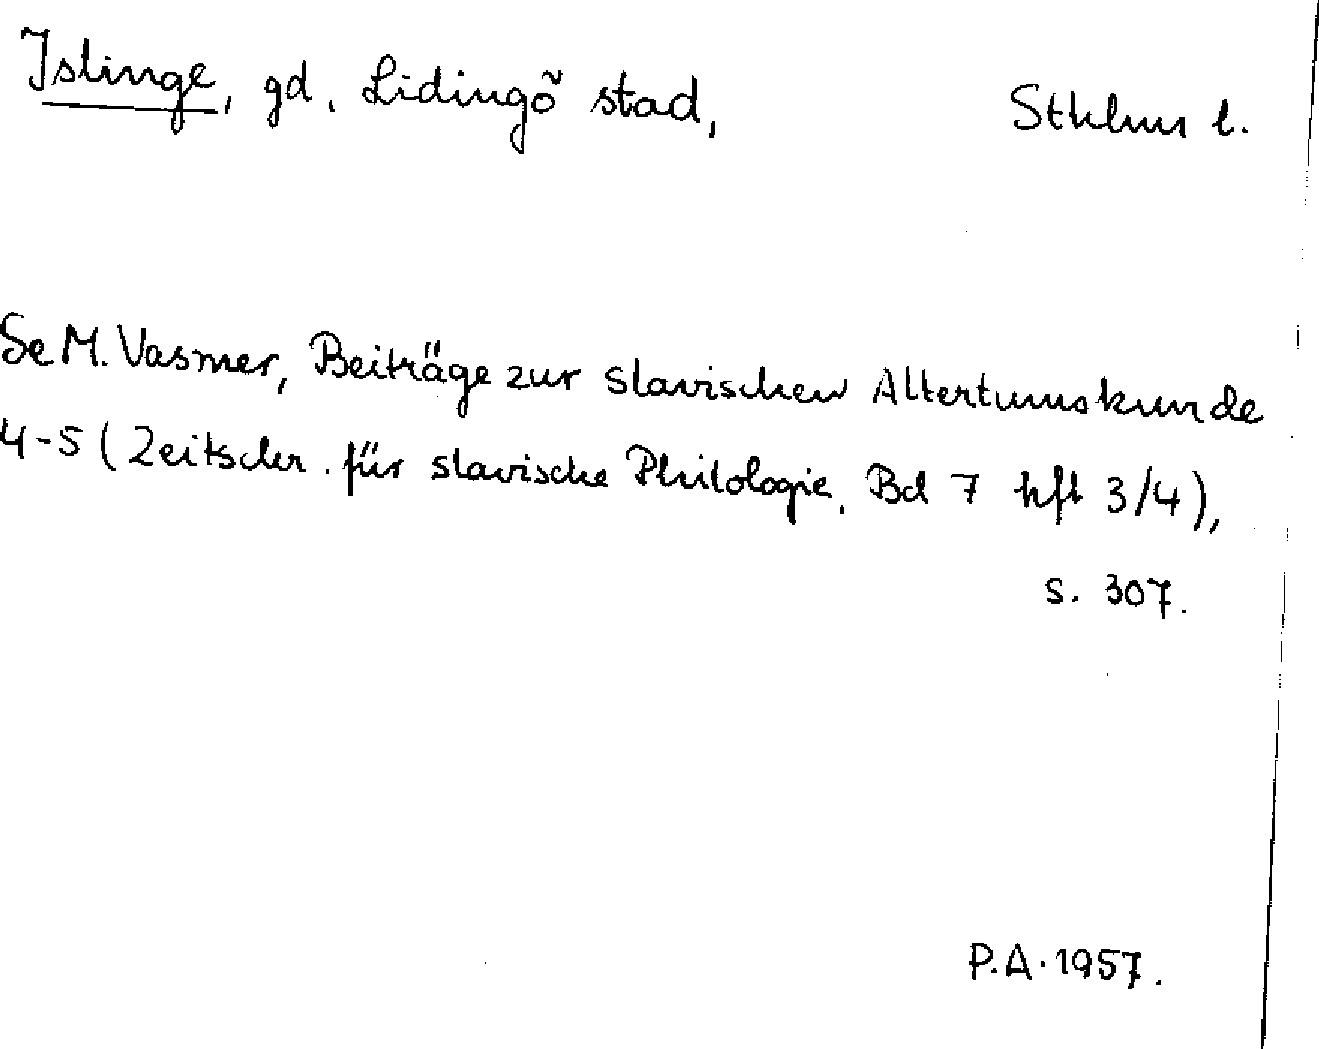 Islinge, gd. Lidingö stad, Sthlms l.
Se M. Vasmer, Beiträge zur slavischen Altertumskunde
4-5 (Zeitschr. für slavische Philologie, Bd 7 hft 3/4),
s. 307.
P.A. 1957.